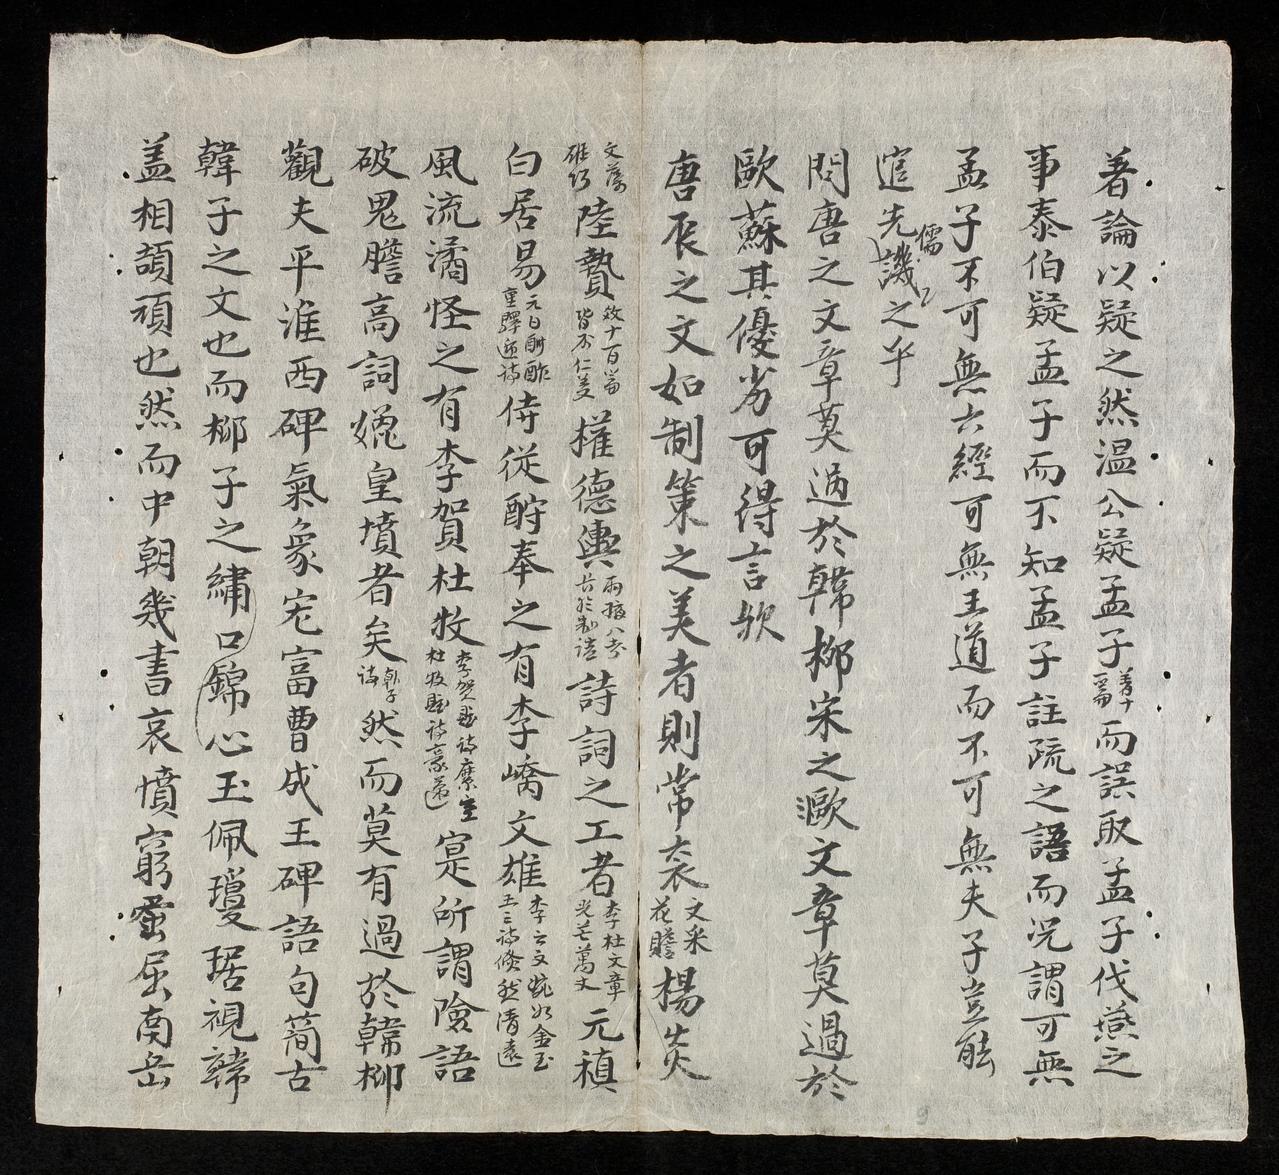 著論以疑之然温公疑孟子而誤取孟子伐燕之
事泰伯疑孟子而不知孟子註疏之語而况謂可無
孟子不可無六經可無王道而不可無夫子豈能
逭先儒譏之乎
問唐之文章莫過於韓柳宋之歐文章莫過於
歐蘇其優劣可得言欤
唐辰之文如制策之美者則常衮文采花贍楊炎
文藻雄巧陸贄權德輿詩詞之工者李杜文章光芒萬丈元稹
白居易元白酬酢侍従酧奉之有李嶠文雄
風流潏怪之有李賀杜牧寔所謂險語
破鬼膽高詞媲皇墳者矣韓子詩然而莫有過於韓柳
觀夫平淮西碑氣象宏富曹成王碑語句簡古
韓子之文也而柳子之繡口錦心玉佩瓊琚視韓
盖相頡頏也然而中朝幾書哀憤窮蛩屈南岳